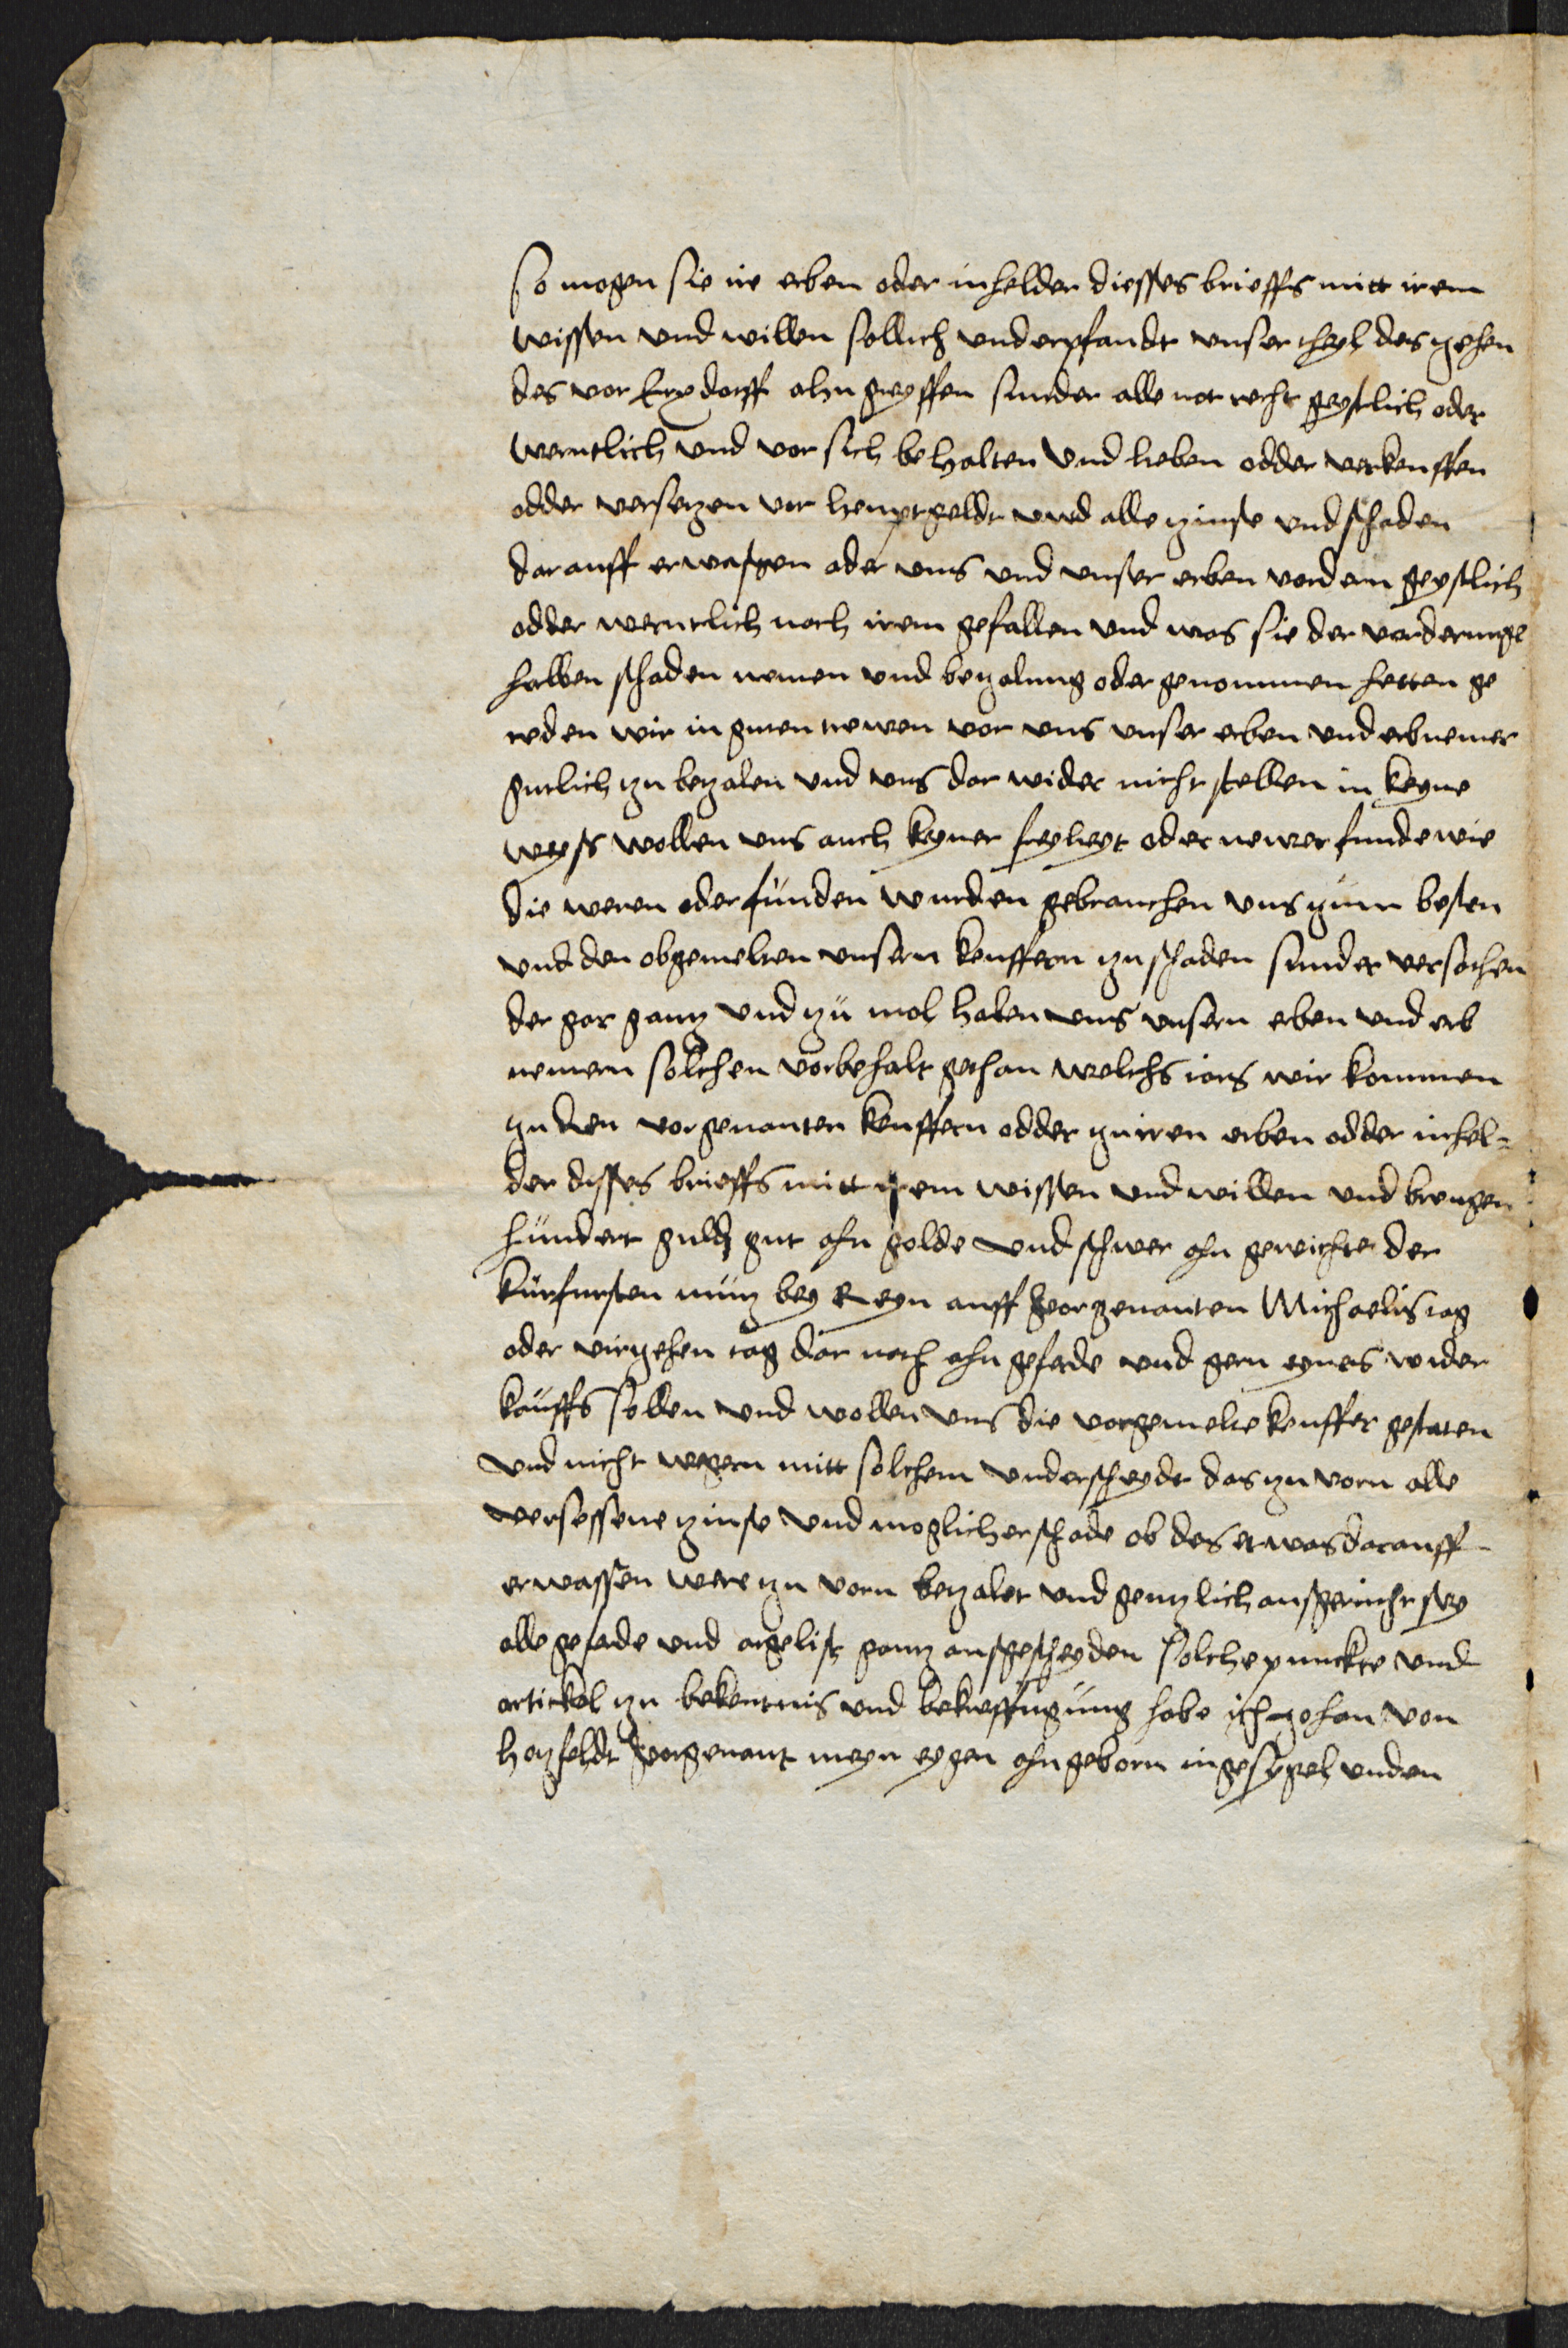 so mogen sie ire erben oder inhelder diesses brieffs mitt irem
wissen und willen sollich underpfandt unser theyl des zehen
des vor Erxdorff ahn greyffen sunder alle not recht geystlich oder
werntlich und vor sich behalten und haben odder verkeuffen
odder versetzen vor heuptgeldt und alle zinse und schaden
darauff erwassen oder uns und unser erben vordern geystlich
odder werntlich noch irem gefallen und was sie der vorderunge
halben schaden nemen und betzalung oder genommen hetten ge
reden wir in guten trewen vor uns unser erben und erbnemer
gutlich zu betzalen und uns dar wider nicht stellen in keyne
weyss wollen uns auch keyner freyheyt oder newer funde wie
die weren oder funden wurden gebrauchen uns zum besten
und den obgemelten unsern keuffern zu schaden sunder versachen
der gar gantz und zu mol haben uns unsern erben und erb
nemern solchen vorbehalt gethan welchs iars wir kommen
zu den vorgenanten keuffern odder zu iren erben odder inhel-
der disses brieffs mitt irem wissen und willen und brengen
hundert guld gut ahn golde und schwer ahn gewichte der
kurfursten muntz bey Reyn auff vorgenanten Michaelis tag
oder virzehen tag dar noch ahn geferde und gern eynes wider
kauffs sollen und wollen uns die vorgemelte keuffer gestaten
und nicht wegern mitt solchem underscheydt das zu vorn alle
versessene zinse und moglicher schade ob des etwas darauff
erwassen were zu vorn betzalet und gentzlich aussgericht sey
alle geferde und argelist gantz aussgescheyden solche punckte und
artickel zu bekentnis und bekrefftigung habe ich Johan von
hatzfeldt vorgenant meyn eygen ahngeborn ingesygel unden